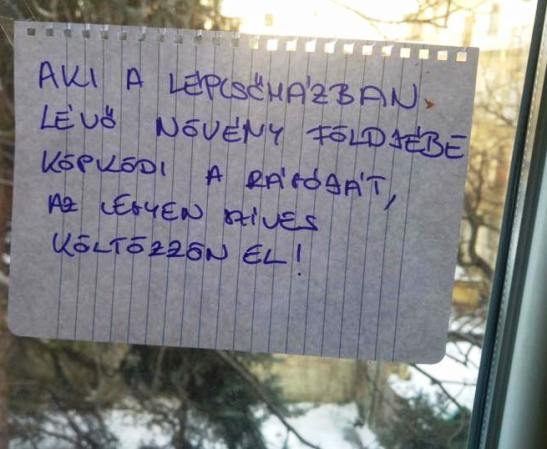 AKI A LÉPCSŐHÁZBAN
LÉVŐ NÖVÉNY FÖLDJÉBE
KÖPKÖDI A RÁGÓJÁT,
AZ LEGYEN SZÍVES
KÖLTÖZZÖN EL!